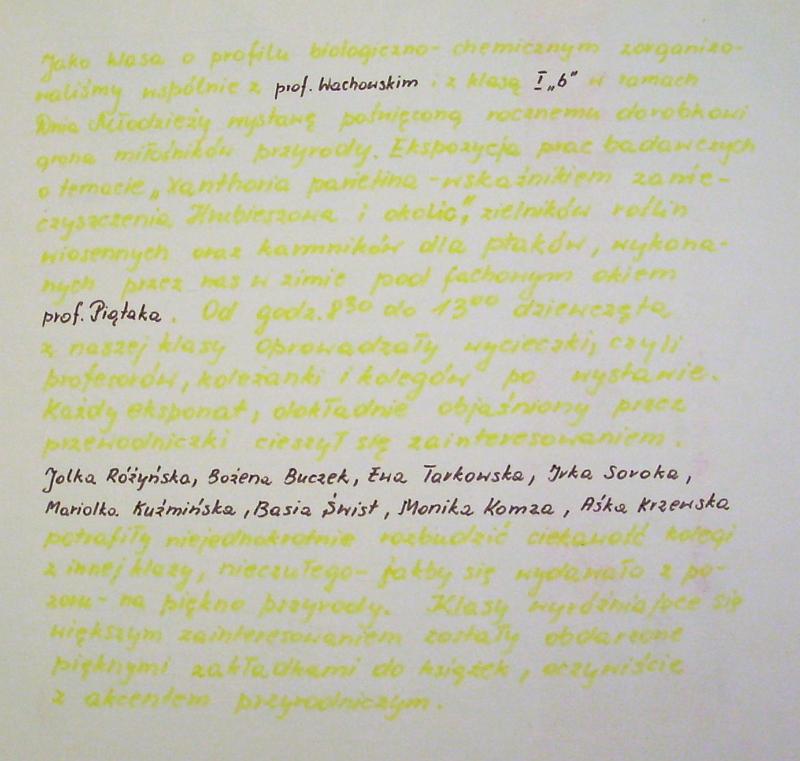 Jako klasa o profilu biologiczno-chemicznym zorganizo-
waliśmy wspólnie z prof. Wachowskim i z klasą I „b" w ramach
Dnia Młodzieży wystawę poświęconą rocznemu dorobkowi
grona miłośników przyrody. Ekspozycja prac badawczych
o temacie „Xanthoria parietina - wskaźnikiem zanie-
czyszczenia Hrubieszowa i okolic", zielników roślin
wiosennych oraz karmników dla ptaków, wykona-
nych przez nas w zimie pod fachowym okiem
prof. Piątaka. Od godz. 8³⁰ do 13⁰⁰ dziewczęta
z naszej klasy oprowadzały wycieczki, czyli
profesorów, koleżanki i kolegów po wystawie.
Każdy eksponat, dokładnie objaśniony przez
przewodniczki cieszył się zainteresowaniem.
Jolka Różyńska, Bożena Buczek, Ewa Tarkowska, Irka Soroka,
Mariolka Kuźmińska, Basia Świst, Monika Komza, Aśka Krzewska
potrafiły niejednokrotnie rozbudzić ciekawość kolegi
z innej klasy, nieczułego - jakby się wydawało z po-
zoru - na piękno przyrody. Klasy wyróżniające się
większym zainteresowaniem zostały obdarzone
pięknymi zakładkami do książek, oczywiście
z akcentem przyrodniczym.